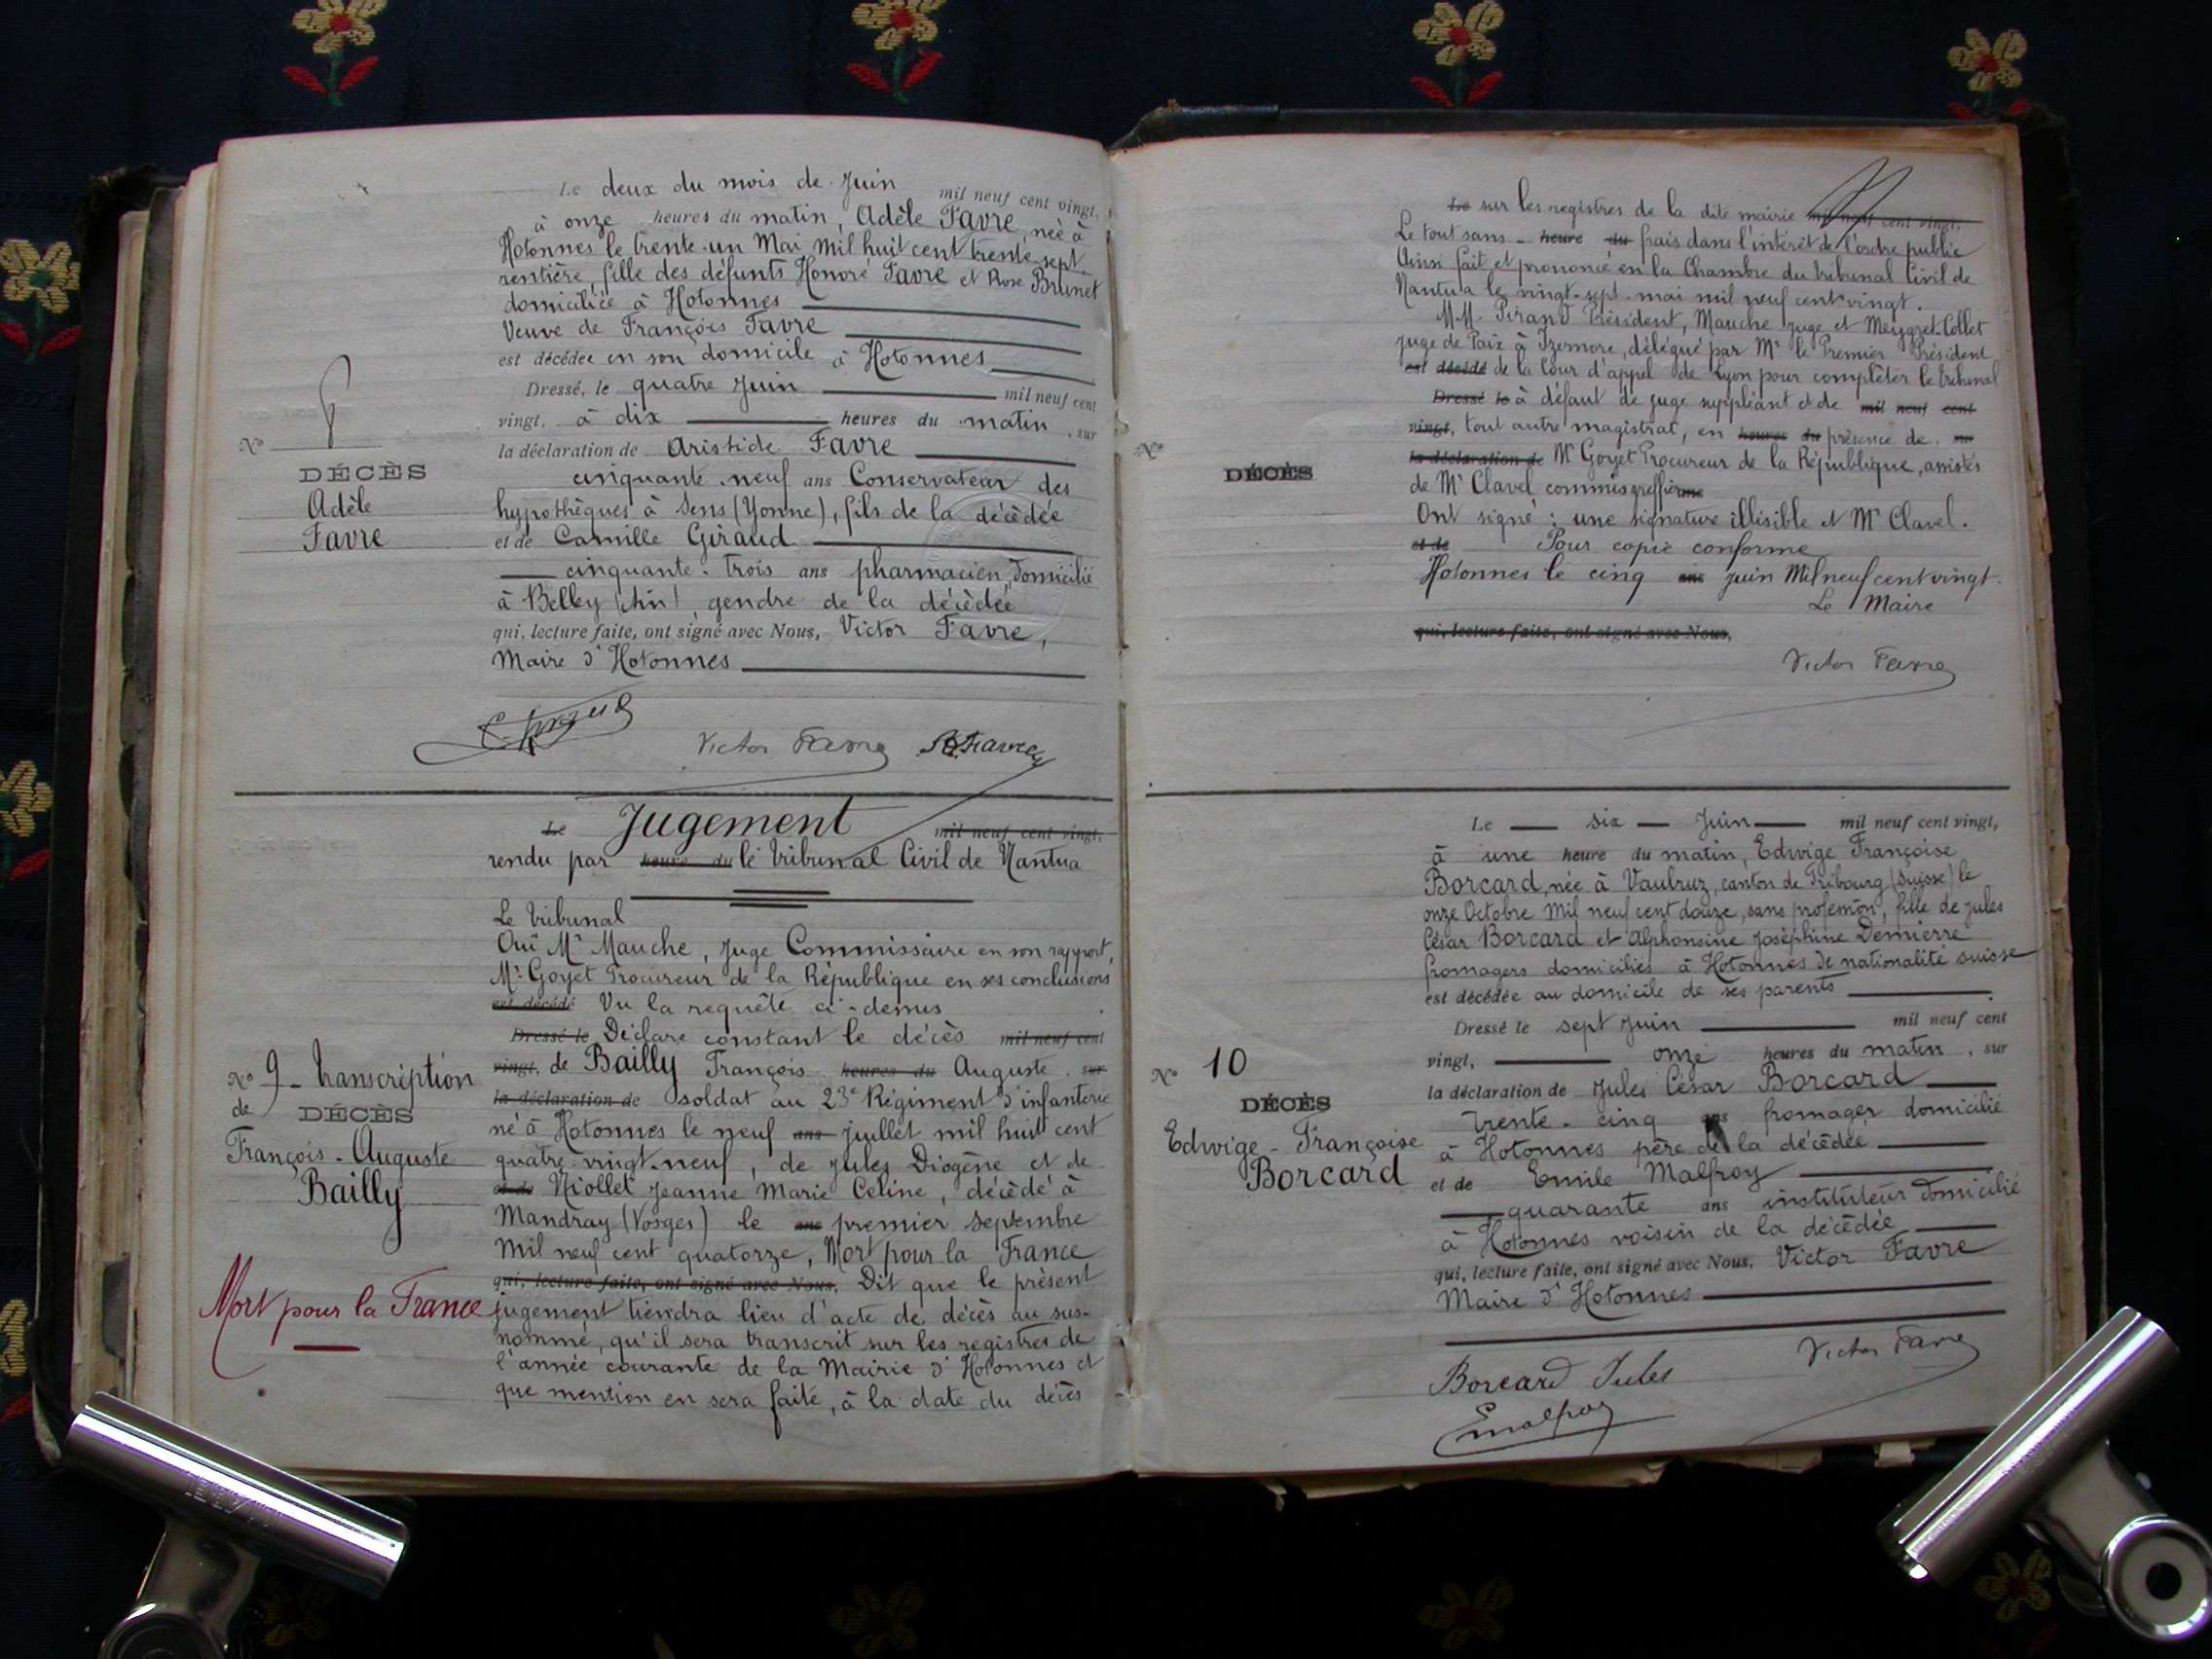 Le deux du mois de Juin mil neuf cent vingt,
à onze heures du matin, Adèle Favre, née à
Hotonnes le trente-un Mai mil huit cent trente-sept
rentière, fille des défunts Honoré Favre et Rose Brunet
domiciliée à Hotonnes
Veuve de François Favre
est décédée en son domicile à Hotonnes
Dressé, le quatre Juin mil neuf cent
vingt, à dix heures du matin, sur
la déclaration de Aristide Favre
cinquante-neuf ans Conservateur des
hypothèques à Sens (Yonne), fils de la décédée
et de Camille Giraud
cinquante-trois ans pharmacien, domicilié
à Belley (Ain), gendre de la décédée
qui, lecture faite, ont signé avec Nous, Victor Favre,
Maire d'Hotonnes
Victor Favre
N° 8
DÉCÈS
Adèle
Favre
Le Jugement mil neuf cent vingt,
rendu par heure du le tribunal Civil de Nantua
Le tribunal
Ouï Mr Mauche, Juge Commissaire en son rapport,
Mr Goyet Procureur de la République en ses conclusions
est décédé Vu la requête ci-dessus
Dressé le Déclare constant le décès mil neuf cent
vingt, de Bailly François heures du Auguste sur
la déclaration de soldat au 23e Régiment d'infanterie
né à Hotonnes le neuf ans juillet mil huit cent
quatre-vingt-neuf, de Jules Diogène et de
et de Niollet Jeanne Marie Celine, décédé à
Mandray (Vosges) le ans premier septembre
mil neuf cent quatorze, Mort pour la France
qui, lecture faite, ont signé avec Nous, Dit que le présent
jugement tiendra lieu d'acte de décès au sus-
nommé, qu'il sera transcrit sur les registres de
l'année courante de la Mairie d'Hotonnes et
que mention en sera faite, à la date du décès
N° 9 - transcription
de
DÉCÈS
François-Auguste
Bailly
Mort pour la France
Le sur les registres de la dite mairie mil neuf cent vingt,
Le tout sans - heure du frais dans l'intérêt de l'ordre public
Ainsi fait et prononcé en la Chambre du tribunal Civil de
Nantua le vingt-sept mai mil neuf cent vingt.
MM. Président, Mauche juge et Meygret-Collet
juge de Paix à Izernore, délégué par Mr le Premier Président
est décédé de la Cour d'appel de Lyon pour compléter le tribunal
Dressé le à défaut de juge suppléant et de mil neuf cent
vingt, tout autre magistrat, en heures du présence de sur
la déclaration de Mr Goyet Procureur de la République, assistés
de Mr Clavel commis greffier
Ont signé : une signature illisible et Mr Clavel.
et de Pour copie conforme
Hotonnes le cinq ans juin Mil neuf cent vingt.
Le Maire
qui, lecture faite, ont signé avec Nous,
Victor Favre
N°
DÉCÈS
Le six Juin mil neuf cent vingt,
à une heure du matin, Edwige Françoise
Borcard, née à Vaulruz, canton de Fribourg (Suisse) le
onze Octobre Mil neuf cent douze, sans profession, fille de Jules
César Borcard et Alphonsine Joséphine Demierre
fromagers domiciliés à Hotonnes de nationalité suisse
est décédée au domicile de ses parents
Dressé le sept Juin mil neuf cent
vingt, onze heures du matin, sur
la déclaration de Jules César Borcard
trente-cinq ans fromager domicilié
à Hotonnes père de la décédée
et de Emile Malfroy
quarante ans instituteur domicilié
à Hotonnes voisin de la décédée
qui, lecture faite, ont signé avec Nous, Victor Favre
Maire d'Hotonnes
Borcard Jules Victor Favre
EMalfroy
N° 10
DÉCÈS
Edwige-Françoise
Borcard